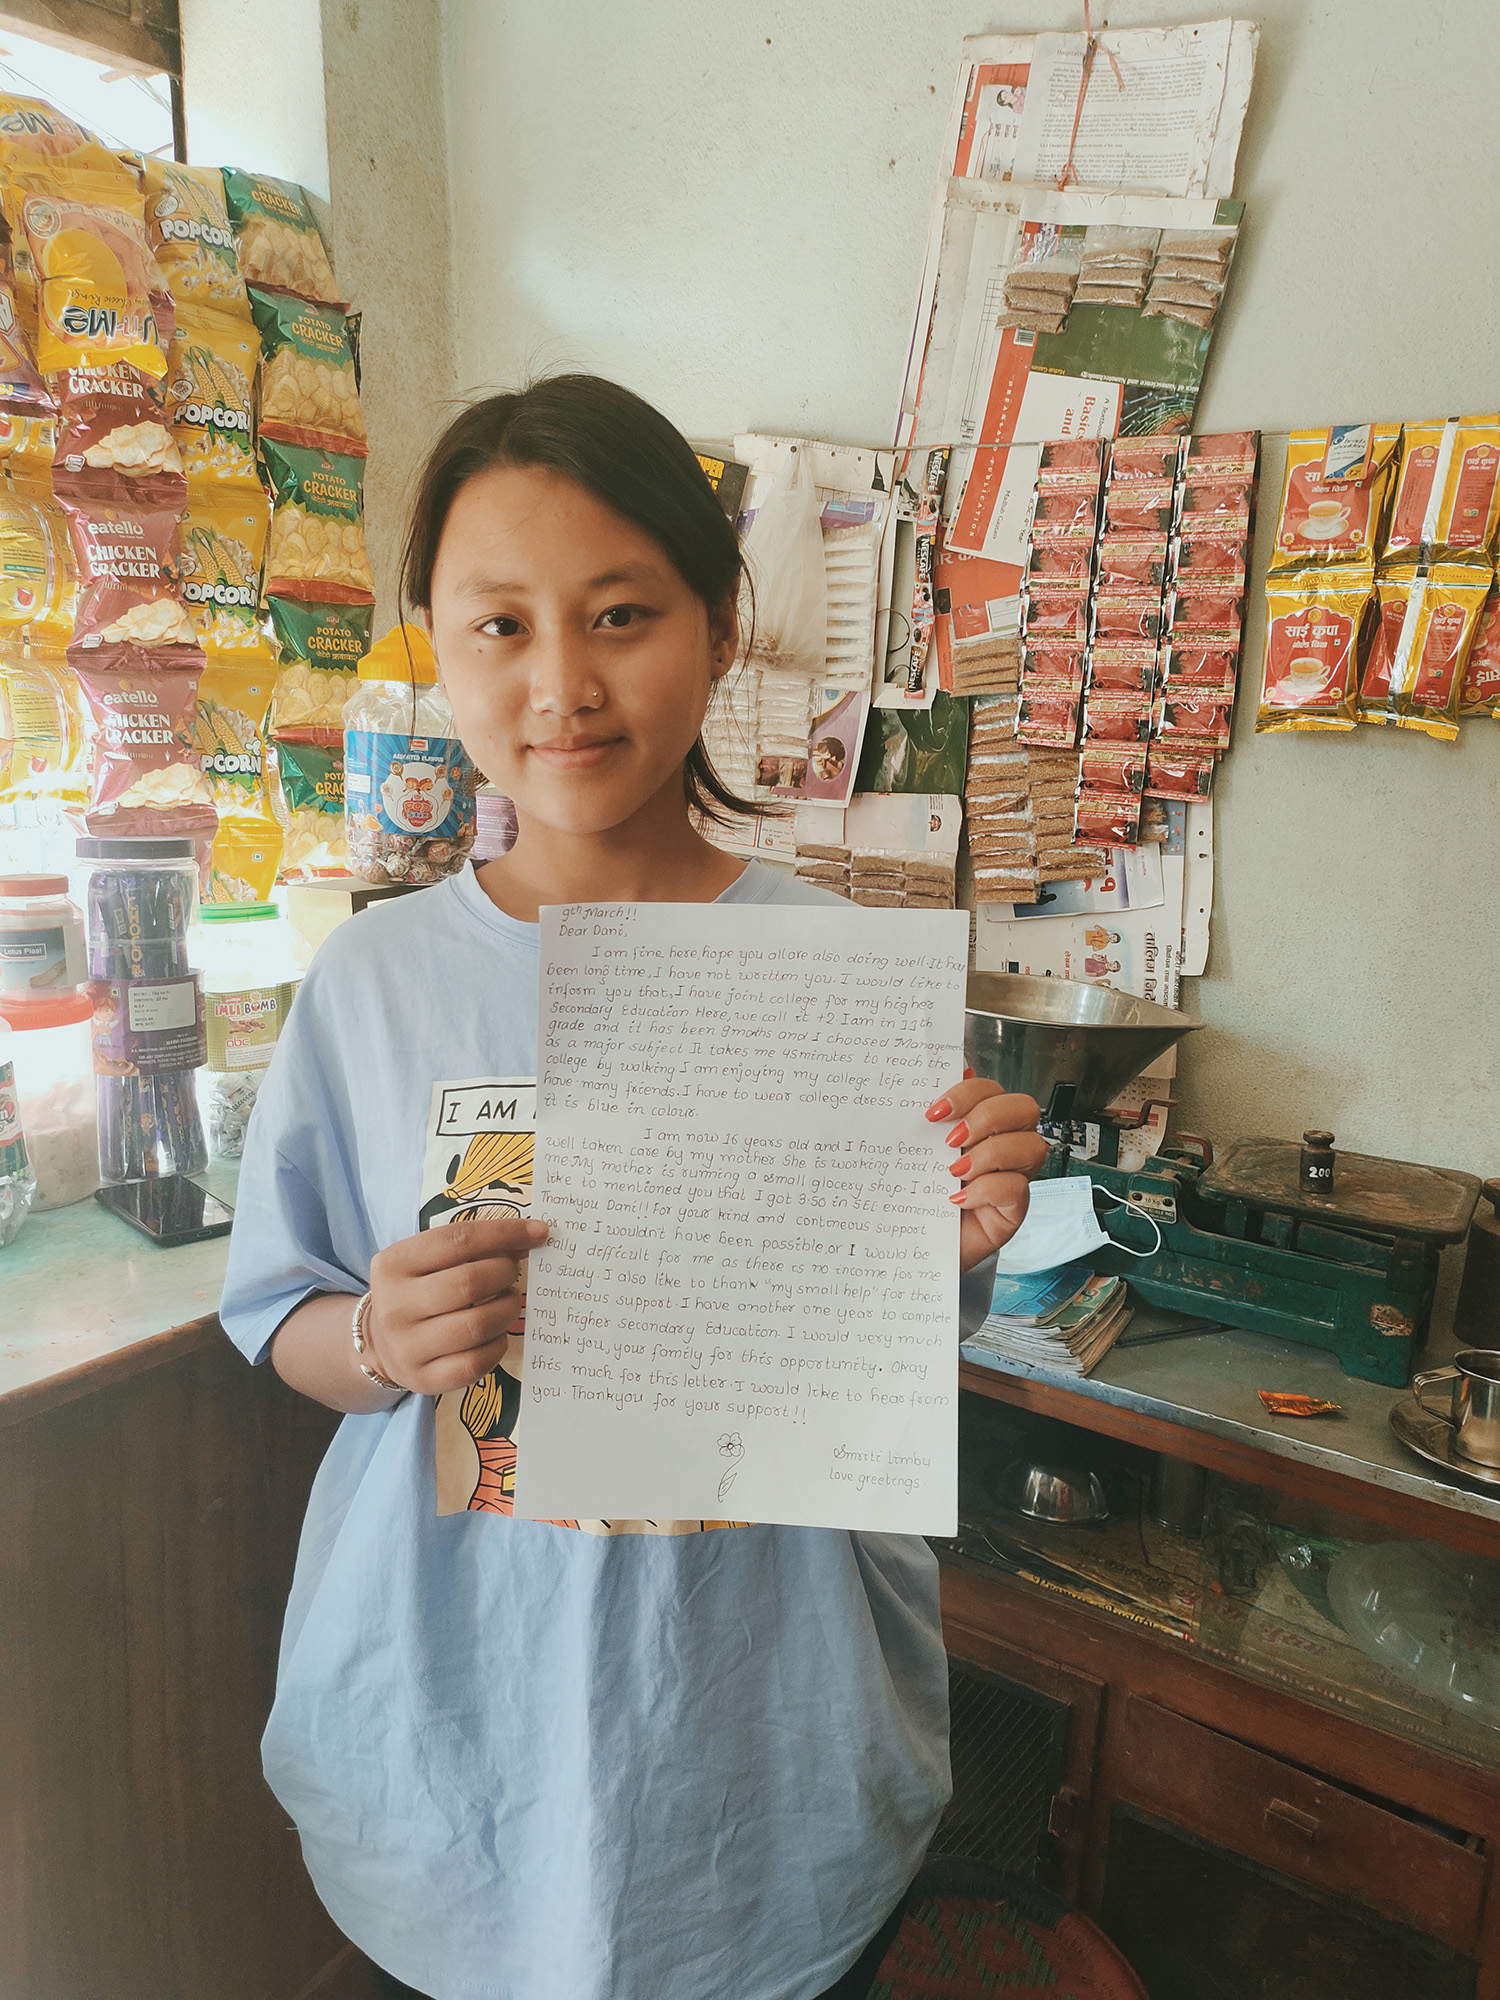 POPCORN
POTATO
CRACKER
CHICKEN
CRACKER
POPCORN
POTATO
CRACKER
eatello
CHICKEN
CRACKER
POPCORN
POTATO
CRACKER
eatello
CHICKEN
CRACKER
POPCORN
ASSORTED FLAVOUR
Lotus Plast
IMLI BOMB
abc
NESCAFE
NESCAFE
NESCAFE
DREAMLAND PUBLICATION
A Textbook
Basics
and
साई कृपा
गोल्ड चिया
I AM
200
10 KG
9th March!!
Dear Dani,
I am fine here, hope you all are also doing well. It has
been long time, I have not written you. I would like to
inform you that, I have joint college for my higher
Secondary Education Here, we call it +2. I am in 11th
grade and it has been 9 moths and I choosed Management
as a major subject It takes me 45minutes to reach the
college by walking I am enjoying my college life as I
have many friends. I have to wear college dress and
it is blue in colour.
I am now 16 years old and I have been
well taken care by my mother. She is working hard for
me. My mother is running a small glocery shop. I also
like to mentioned you that I got 3.50 in SEE examination
Thankyou Dani!! For your kind and contineous support
for me. I wouldn't have been possible, or I would be
really difficult for me as there is no income for me
to study. I also like to thank "my small help" for their
contineous support. I have another one year to complete
my higher secondary Education. I would very much
thank you, your family for this opportunity. Okay
this much for this letter. I would like to hear from
you. Thankyou for your support!!
Smriti Limbu
love greetings